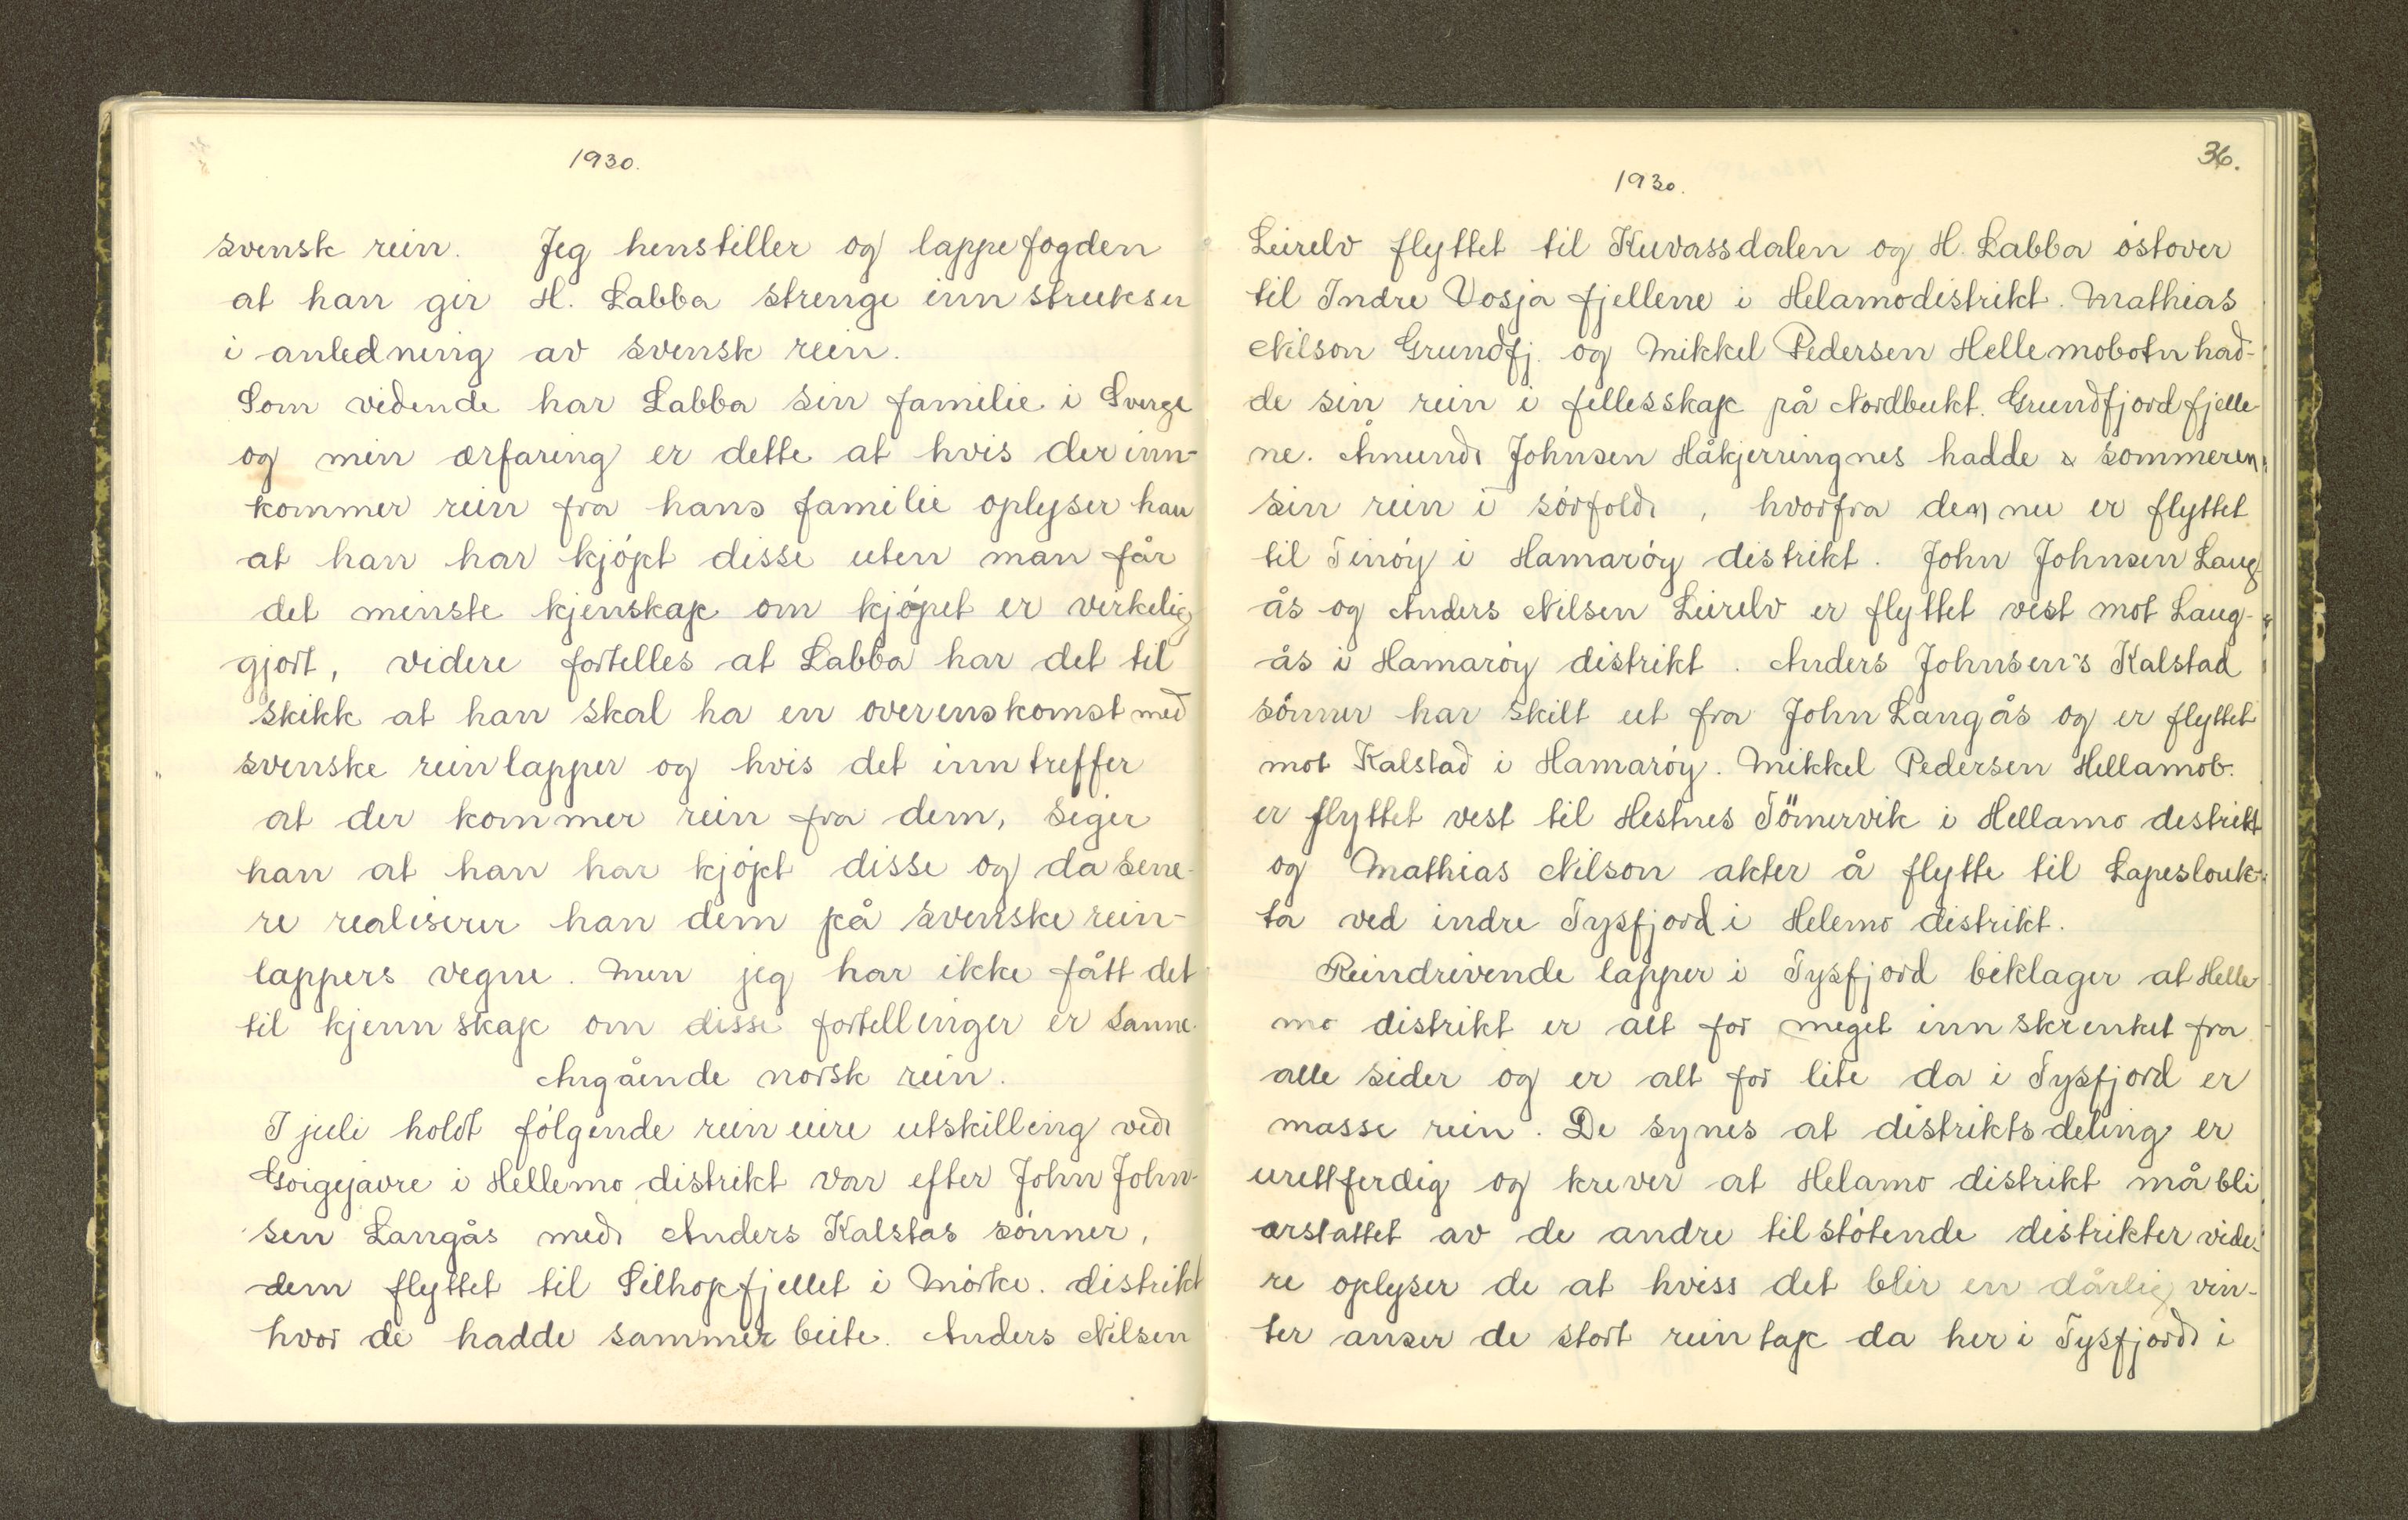 1930.
svensk rein. Jeg henstiller og lappefogden
at han gir H. Labba strenge innstrukser
i anledning av svensk rein.
Som vidende har Labba sin familie i Sverge
og min ærfaring er dette at hvis der inn-
kommer rein fra hans familie oplyser han
at han har kjópt disse uten man får
det minste kjenskap om kjópet er virkelig
gjort, videre fortelles at Labba har det til
skikk at han skal ha en overenskomst med
svenske reinlapper og hvis det inntreffer
at der kommer rein fra dem, siger
han at han har kjópt disse og da sene-
re realiserer han dem på svenske rein-
lappers vegne. Men jeg har ikke fått det
til kjennskap om disse fortellinger er sanne.
Angående norsk rein.
I juli holdt fólgende rein eiere utskilling ved
Goigejavre i Hellemo distrikt var efter John John-
sen Langås med Anders Kalstas sónner,
dem flyttet til Silhopfjellet i Mórke. distrikt
hvor de hadde sammer beite. Anders Nilsen
36.
1930.
Leirelv flyttet til Kuvassdalen og H. Labba óstover
til Indre Vosja fjellene i Helamodistrikt. Mathias
Nilson Grundfj. og Mikkel Pedersen Hellemobotn had-
de sin rein i fellesskap på Nordbukt. Grundfjordfjelle-
ne. Amund Johnsen Håkjerringnes hadde sommeren
sin rein i sórfold, hvorfra den nu er flyttet
til Tinóy i Hamaróy distrikt. John Johnsen Lang-
ås og Anders Nilsen Leirelv er flyttet vest mot Lang-
ås i Hamaróy distrikt. Anders Johnsen's Kalstad
sónner har skilt ut fra John Langås og er flyttet
mot Kalstad i Hamaróy. Mikkel Pedersen Hellamob.
er flyttet vest til Hestnes Tömervik i Hellamo distrikt
og Mathias Nilson akter å flytte til Lapeslouk-
ta ved indre Tysfjord i Helemo distrikt.
Reindrivende lapper i Tysfjord beklager at Helle-
mo distrikt er alt for meget innskrenket fra
alle sider og er alt for lite da i Tysfjord er
masse rein. De synes at distriktsdeling er
urettferdig og krever at Helamo distrikt må bli
ærstattet av de andre tilstótende distrikter vide-
re oplyser de at hviss det blir en dårlig vin-
ter anser de stort reintap da her i Tysfjord i